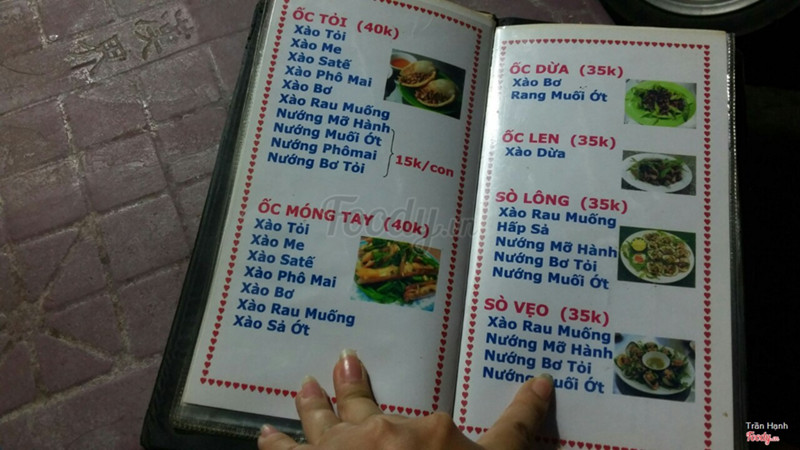 ỐC TỎI (40k)
Xào Tỏi
Xào Me
Xào Satế
Xào Phô Mai
Xào Bơ
Xào Rau Muống
Nướng Mỡ Hành
Nướng Muối Ớt
Nướng Phômai
Nướng Bơ Tỏi
15k/con
ỐC MÓNG TAY (40k)
Xào Tỏi
Xào Me
Xào Satế
Xào Phô Mai
Xào Bơ
Xào Rau Muống
Xào Sả Ớt
ỐC DỪA (35k)
Xào Bơ
Rang Muối Ớt
ỐC LEN (35k)
Xào Dừa
SÒ LÔNG (35k)
Xào Rau Muống
Hấp Sả
Nướng Mỡ Hành
Nướng Bơ Tỏi
Nướng Muối Ớt
SÒ VẸO (35k)
Xào Rau Muống
Nướng Mỡ Hành
Nướng Bơ Tỏi
Nướng Muối Ớt
Foody.vn
Trần Hạnh
Foody.vn